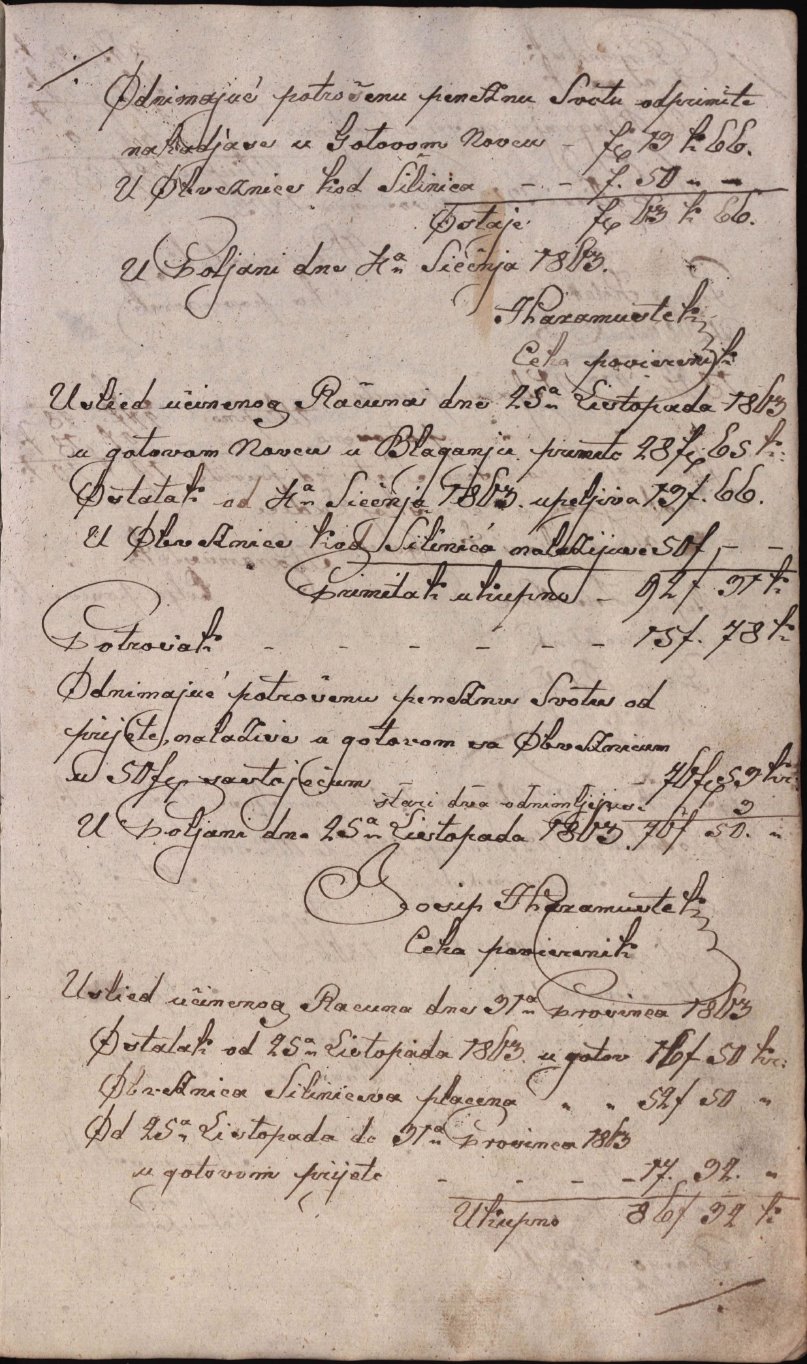 Odnimajuć potrošenu penežnu Svotu od primite
nahadjase u Gotovom Novcu – f 13 k 66.
U Obveznice kod Silinića – – f. 50 „ –
Ostaje f 63 k 66.
U Poljani dne 4a Siečnja 1863.
Tharamustek
Ceha povierenik
Uslied učinenog Računa dne 25a Listopada 1863
u gotovom Novcu u Blaganju primito 28f 65 k:
Ostatak od 4a Siečnja 1863. upeljiva 13f. 66.
U Obveznice kod Silinića nalazijuće 50f – –
Primitak ukupno – 92f 31 k
Potrošak – – – – – – 15f. 78 k
Odnimajuć potrošenu penežnu Svotu od
prijete, nalazise u gotovom sa Obveznicum
u 50f sastoječum – 76f 53 kr:
stari dva odnimljijuć 3
U Poljani dne 25a Listopada 1863. 76f 50. „
Josip Tharamustek
Ceha povierenik
Uslied učinenog Racuna dne 31a Prosinca 1863
Ostatak od 25a Listopada 1863 u gotov 16f 50 kr:
Obveznica Siliniceva placena „ „ 52f 50 „
Od 25a Listopada do 31a Prosinca 1863
u gotovom prijeto – – – – 17. 32. „
Ukupno 86f 32 k